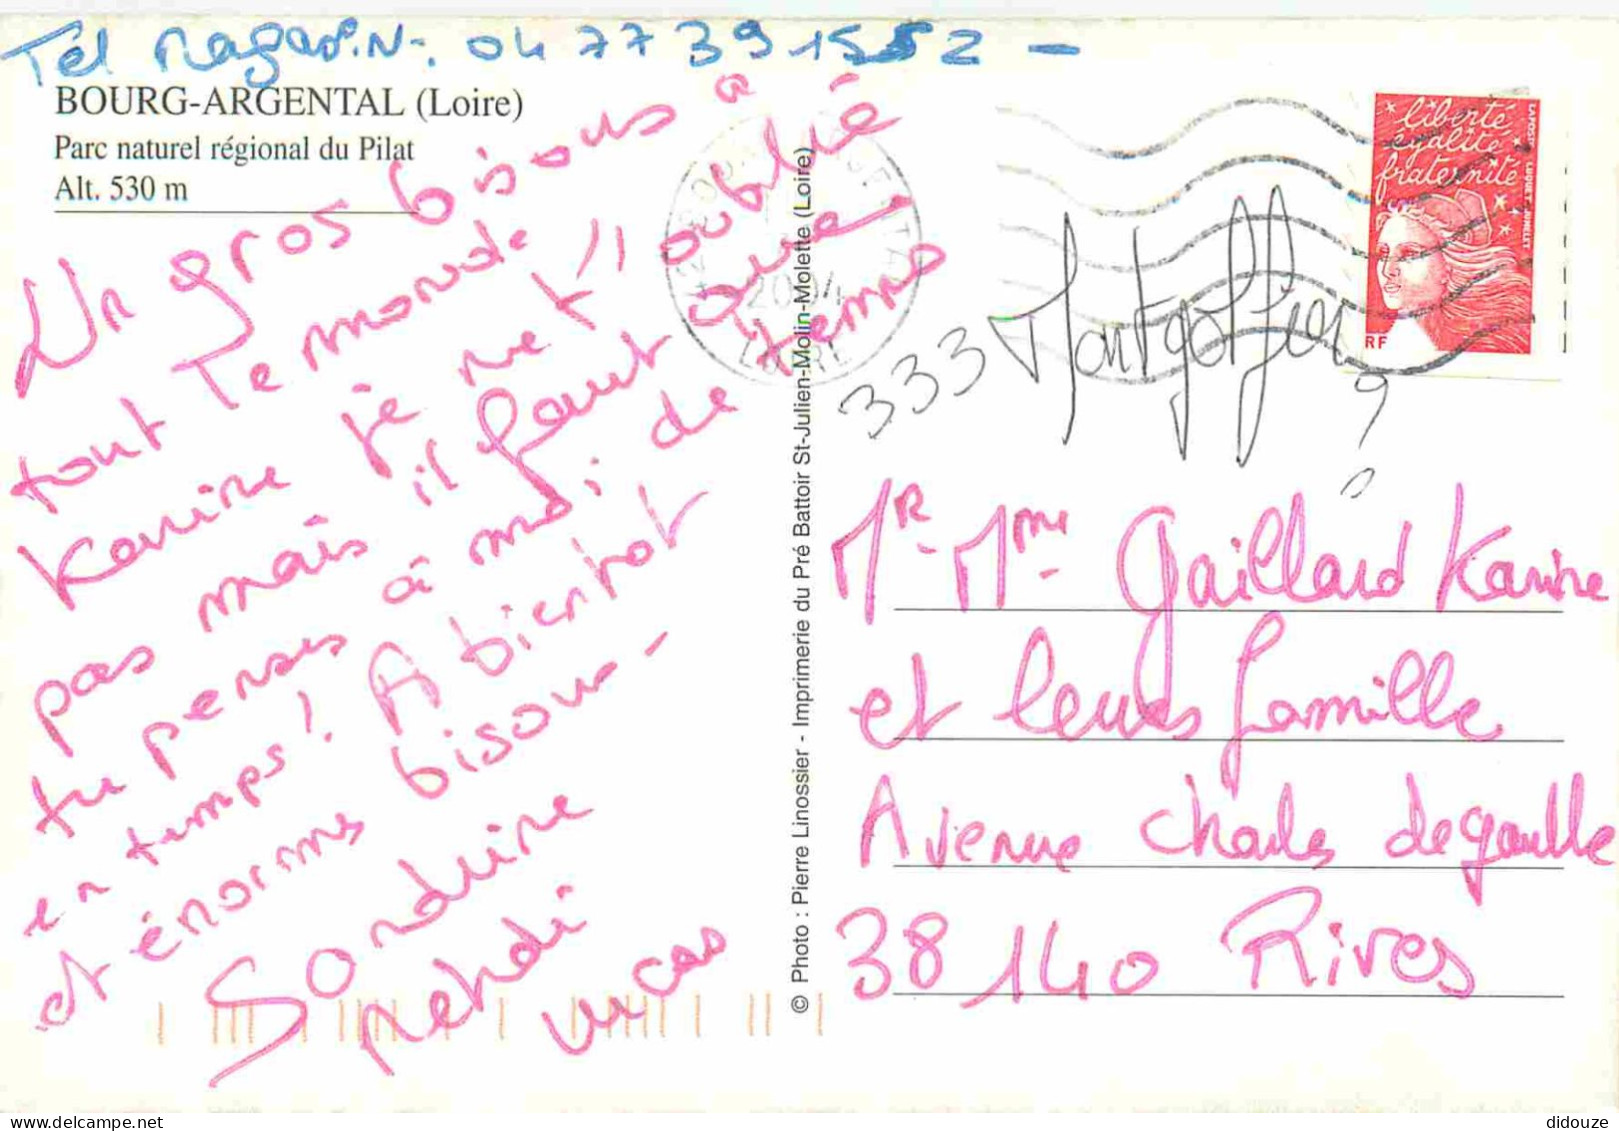 Tél Magasin. 04 77 39 15 52 -
BOURG-ARGENTAL (Loire)
Parc naturel régional du Pilat
Alt. 530 m
Un gros bisous à
tout le monde
Karine je ne t'ai oublié
pas mais il faut que
tu penses à moi de temps
en temps! A bientot
et énormes bisous -
Sandrine
Mehdi
Lucas
© Photo : Pierre Linossier - Imprimerie du Pré Battoir St-Julien-Molin-Molette (Loire)
42 BOURG ARGENTAL
2004
LOIRE
liberté
égalité
fraternité
RF
LAPOSTE
333 Montgolfier ?
Mr. Mme Gaillard Karine
et leurs famille
Avenue Charles de gaulle
38140 Rives
didouze